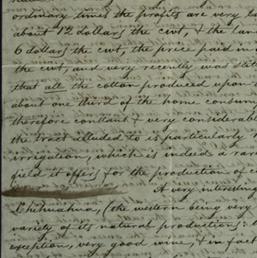 ordinary times the profits are very la
about 12 dollars the cwt, & the lan
6 dollars the cwt, the price paid in
the cwt, and very recently was
that all the cotton produced upon
about one third of the home consum
therefore constant & very considerable
the tract alluded to is particularly
irrigation, which is indeed a ran
field it offers for the production of c
A very interesting
Chihuahua, (the western being very
variety of its natural productions:
exception, very good wine, & in fact